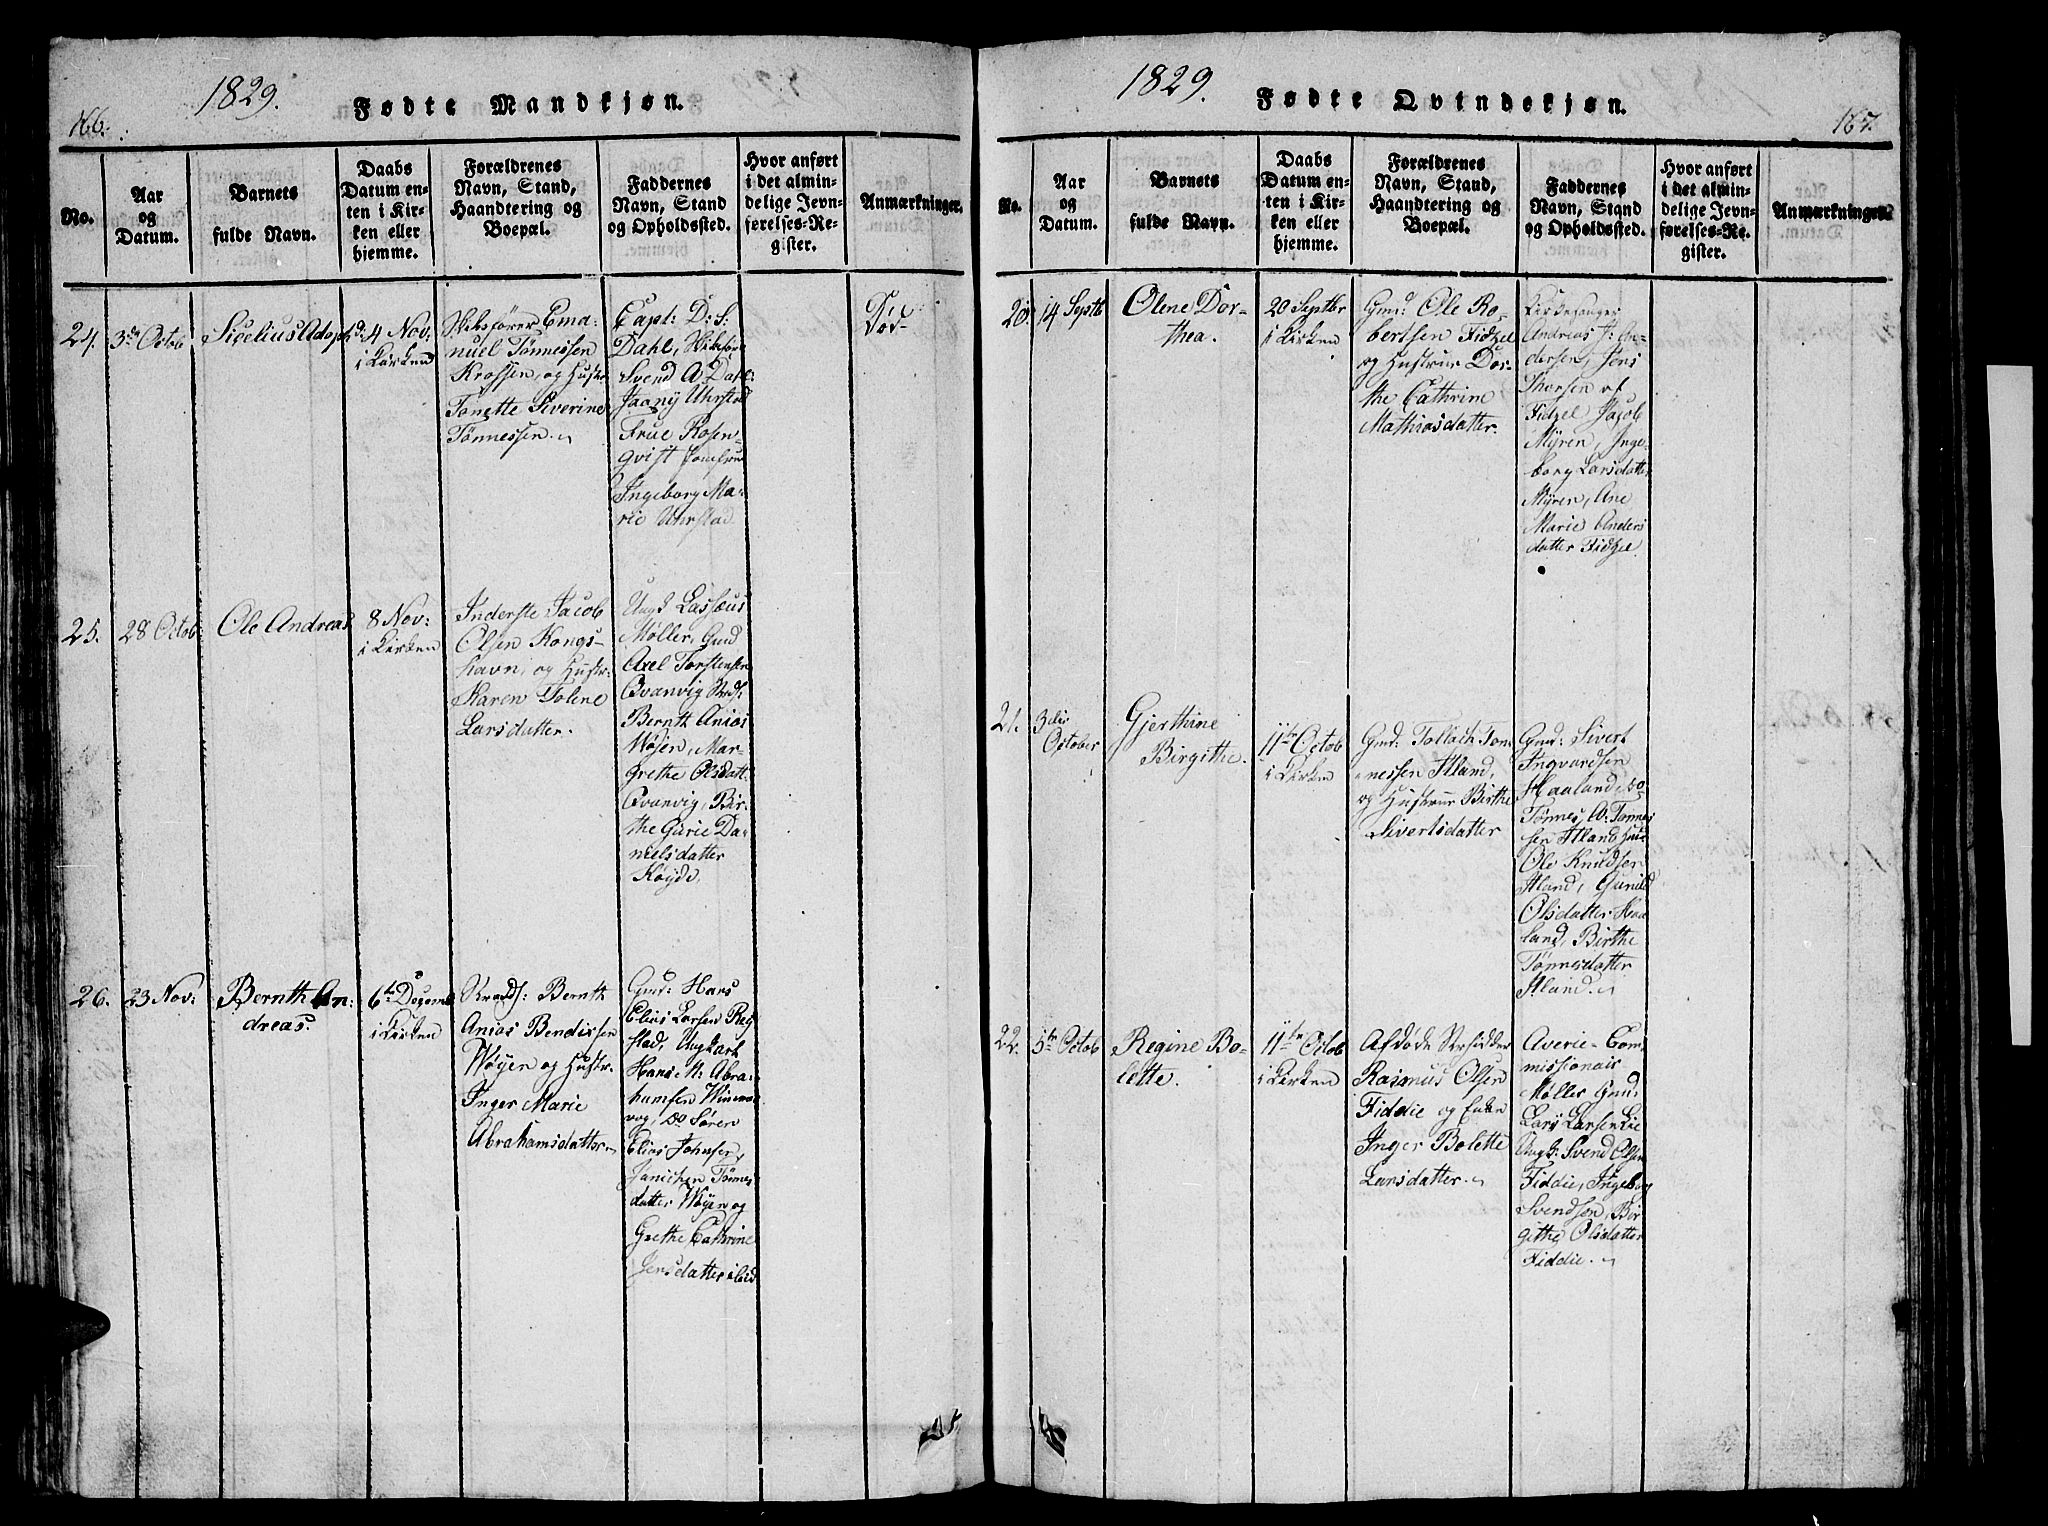 166.
1829.
Fødte Mandkjøn.
No.
Aar
og
Datum.
Barnets
fulde Navn.
Daabs
Datum en-
ten i Kir-
ken eller
hjemme.
Forældrenes
Navn, Stand,
Haandtering og
Boepæl.
Faddernes
Navn, Stand
og Opholdssted.
Hvor anført
i det almin-
delige Jevn-
førelses-Re-
gister.
Anmærkninger.
24.
3de Octob
Sicelius Adoph
d: 4 Nov:
i Kirken
Skibsfører Ema-
nuel Tønnessen
Krossen, og Hustr
Tonette Severine
Tønnessen.
Capt: D: S:
Dahl, Skibsfør
Svend A Dahl:
Jaany Uhrstad
Frue Rosen-
qvist Jomfrue
Ingeborg Ma-
rie Uhrstad
Død
25.
28 Octob
Ole Andreas
8 Nov:
i Kirken
Inderste Jacob
Olsen Kongs-
havn, og Hustr.
Karen Tolene
Larsdatter.
Ungk Lassæus
Møller, Gmd
Axel Torstensen
Qvanvig
Bernth Anias
Wøjen, Mar-
grethe Olsdatt.
Qvanvig, Bir-
the Gurie Da-
nielsdatter
Røyde.
26.
23 Nov:
Bernth An:
dreas.
6te Decemb
i Kirken
Strands: Bernth
Anias Bendixsen
Wøyen og Hustr.
Inger Marie
Abrahamsdatter
Gmd: Hans
Elias Larsen Reg
stad, Ungkarl
Hans N: Abra-
hamsen
vog, do Søren
Elias Johnsen,
Janichen Tønnes
datter Wøyen og
Grethe Cathrine
Jensdatter ibid
1829.
Fødte Qvindekjøn.
167.
No.
Aar
og
Datum.
Barnets
fulde Navn.
Daabs
Datum en-
ten i Kir-
ken eller
hjemme.
Forældrenes
Navn, Stand,
Haandtering og
Boepæl.
Faddernes
Navn, Stand
og Opholdssted.
Hvor anført
i det almin-
delige Jevn-
førelses-Re-
gister.
Anmærkninger.
20.
14 Septb
Olene Dor-
thea.
20 Septbr
i Kirken
Gmd: Ole Ro-
bertsen Fidzel
og Hustrue Dor-
the Cathrine
Mathiasdatter.
Kirkesanger
Andreas J: An-
dersen, Jens
Thorsen af
Fidzel Jacob
Myren, Inge-
borg Larsdatter
Myren, Ane
Marie Anders
datter Fidzel.
21.
3die
October
Gjerthine
Birgithe.
11te Octob
i Kirken
Gmd: Tollack Tøn-
nessen Iland,
og Hustrue Birthe
Sivertsdatter
Gmd: Sivert
Ingvardsen
Haaland, do
Tønnes, A: Tønnes
sen Iland Hus
Ole Knudsen
Iland, Gunild
Olsdatter Haa
land, Birthe
Tønnesdatter
Iland.
22.
5te Octob
Regine Bo-
lette.
11te Octob
i Kirken
Afdøde Strsidder
Rasmus Olsen
Fiddie og Enke
Inger Bolette
Larsdatter.
Averie-Com
missionair
Møller Gmd:
Lars Larsen Lie
Ungk: Svend Olsen
Fiddie, Ingeborg
Svendsen, Bir-
githe Olsdatter
Fiddie.